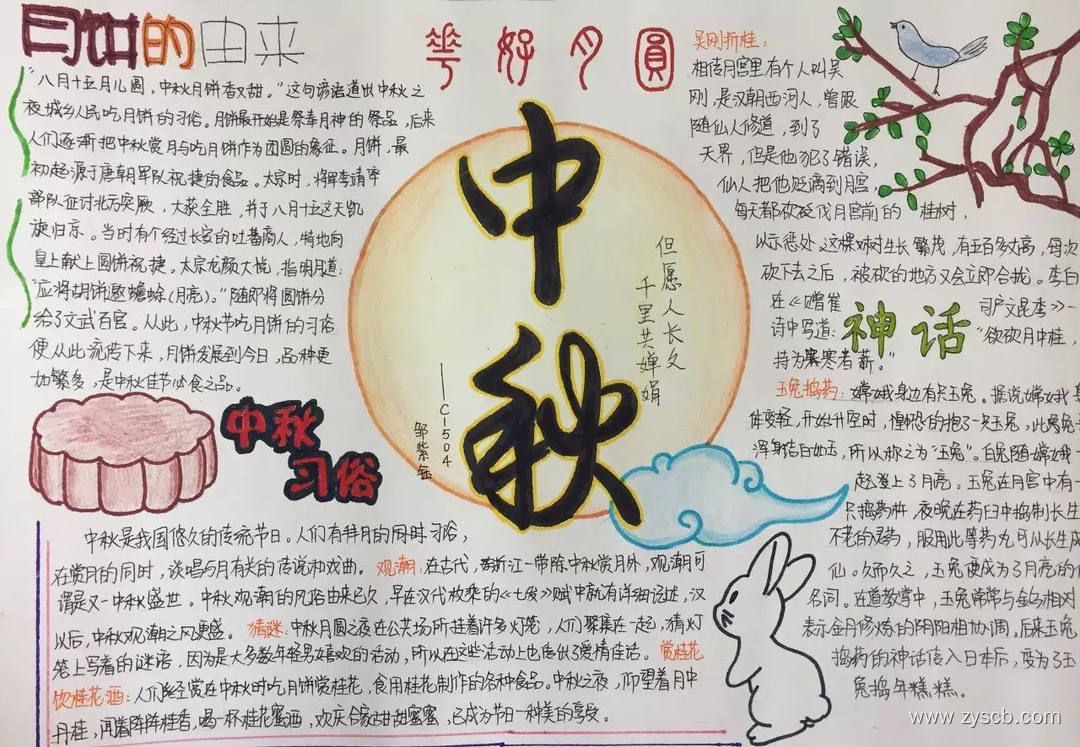 月饼的由来
"八月十五月儿圆，中秋月饼香又甜。"这句谚语道出中秋之
夜城乡人民吃月饼的习俗。月饼最开始是祭奉月神的祭品，后来
人们逐渐把中秋赏月与吃月饼作为团圆的象征。月饼，最
初起源于唐朝军队祝捷的食品。太宗时，将军李靖率
部队征讨北方突厥，大获全胜，并于八月十五这天凯
旋归京。当时有个经过长安的吐蕃商人，特地向
皇上献上圆饼祝捷。太宗龙颜大悦，指明月道：
"应将胡饼邀蟾蜍(月亮)。"随即将圆饼分
给了文武百官。从此，中秋节吃月饼的习俗
便从此流传下来，月饼发展到今日，品种更
加繁多，是中秋佳节必食之品。
花好月圆
中秋
但愿人长久
千里共婵娟
——C1504
邹紫钰
吴刚折桂：
相传月宫里有个人叫吴
刚，是汉朝西河人，曾跟
随仙人修道，到了
天界，但是他犯了错误，
仙人把他贬谪到月宫，
每天都砍伐月宫前的 桂树，
以示惩处。这棵树生长繁茂，有五百多丈高，每次
砍下去之后，被砍的地方又会立即合拢。李白
在《赠崔 司户文昆季》一
诗中写道： "欲砍月中桂，
持为寒者薪。"
神话
玉兔捣药：嫦娥身边有只玉兔。据说嫦娥身
体变轻，开始升空时，惶恐的抱了一只玉兔，此兔
浑身洁白如玉，所以称之为"玉兔"。白兔随嫦娥一
起登上了月亮。玉兔在月宫中有一
只捣药杵，夜晚在药臼中捣制长生
不老的药，服用此等药丸可以长生成
仙。久而久之，玉兔便成为了月亮的代
名词。在道教学中，玉兔常常与金乌相对
表示金月修炼的阴阳相协调。后来玉兔
捣药的神话传入日本后，变为了玉
兔捣年糕糕。
中秋
习俗
中秋是我国悠久的传统节日。人们有拜月的同时习俗，
在赏月的同时，谈唱与月有关的传说和戏曲。观潮：在古代，浙江一带除中秋赏月外，观潮可
谓是又一中秋盛世。中秋观潮的风俗由来已久，早在汉代枚乘的《七发》赋中就有详细记述，汉
以后，中秋观潮之风更盛。猜谜：中秋月圆之夜在公共场所挂着许多灯笼，人们聚集在一起，猜灯
笼上写着的谜语，因为是大多数年轻男女喜欢的活动，所以在这些活动上也传出了爱情佳话。赏桂花
饮桂花酒：人们经赏在中秋时吃月饼赏桂花，食用桂花制作的各种食品。中秋之夜，仰望着月中
丹桂，闻着阵阵桂香，喝一杯桂花蜜酒，欢庆合家甜甜蜜蜜，已成为节日一种美的享受。
www.zyscb.com